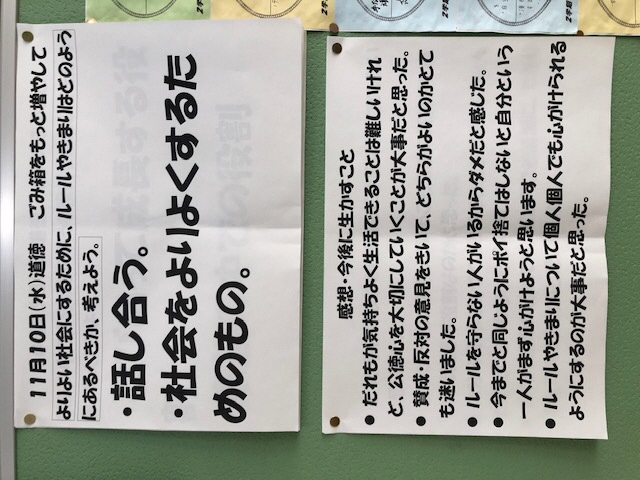 11月10日(水)道徳　ごみ箱をもっと増やして
よりよい社会にするために、ルールやきまりはどのよう
にあるべきか、考えよう。
・話し合う。
・社会をよりよくするた
めのもの。
感想・今後に生かすこと
● だれもが気持ちよく生活できることは難しいけれ
ど、公徳心を大切にしていくことが大事だと思った。
● 賛成・反対の意見をきいて、どちらがよいのかとて
も迷いました。
● ルールを守らない人がいるからダメだと感じた。
● 今までと同じようにポイ捨てはしないと自分という
一人がまず心がけようと思います。
● ルールやきまりについて個人個人でも心がけられる
ようにするのが大事だと思った。
2学期
2学期
2学期